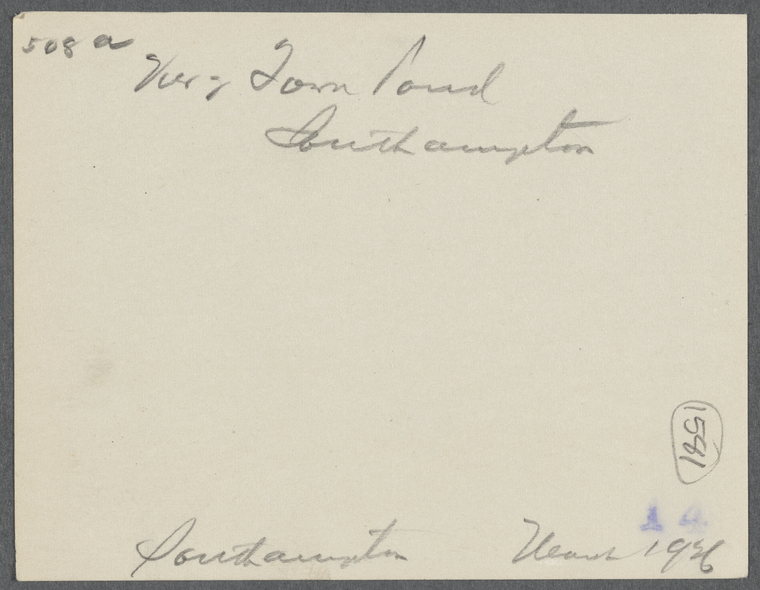 508 a
Town Pond
Southampton
1591
14
Southampton March 1926